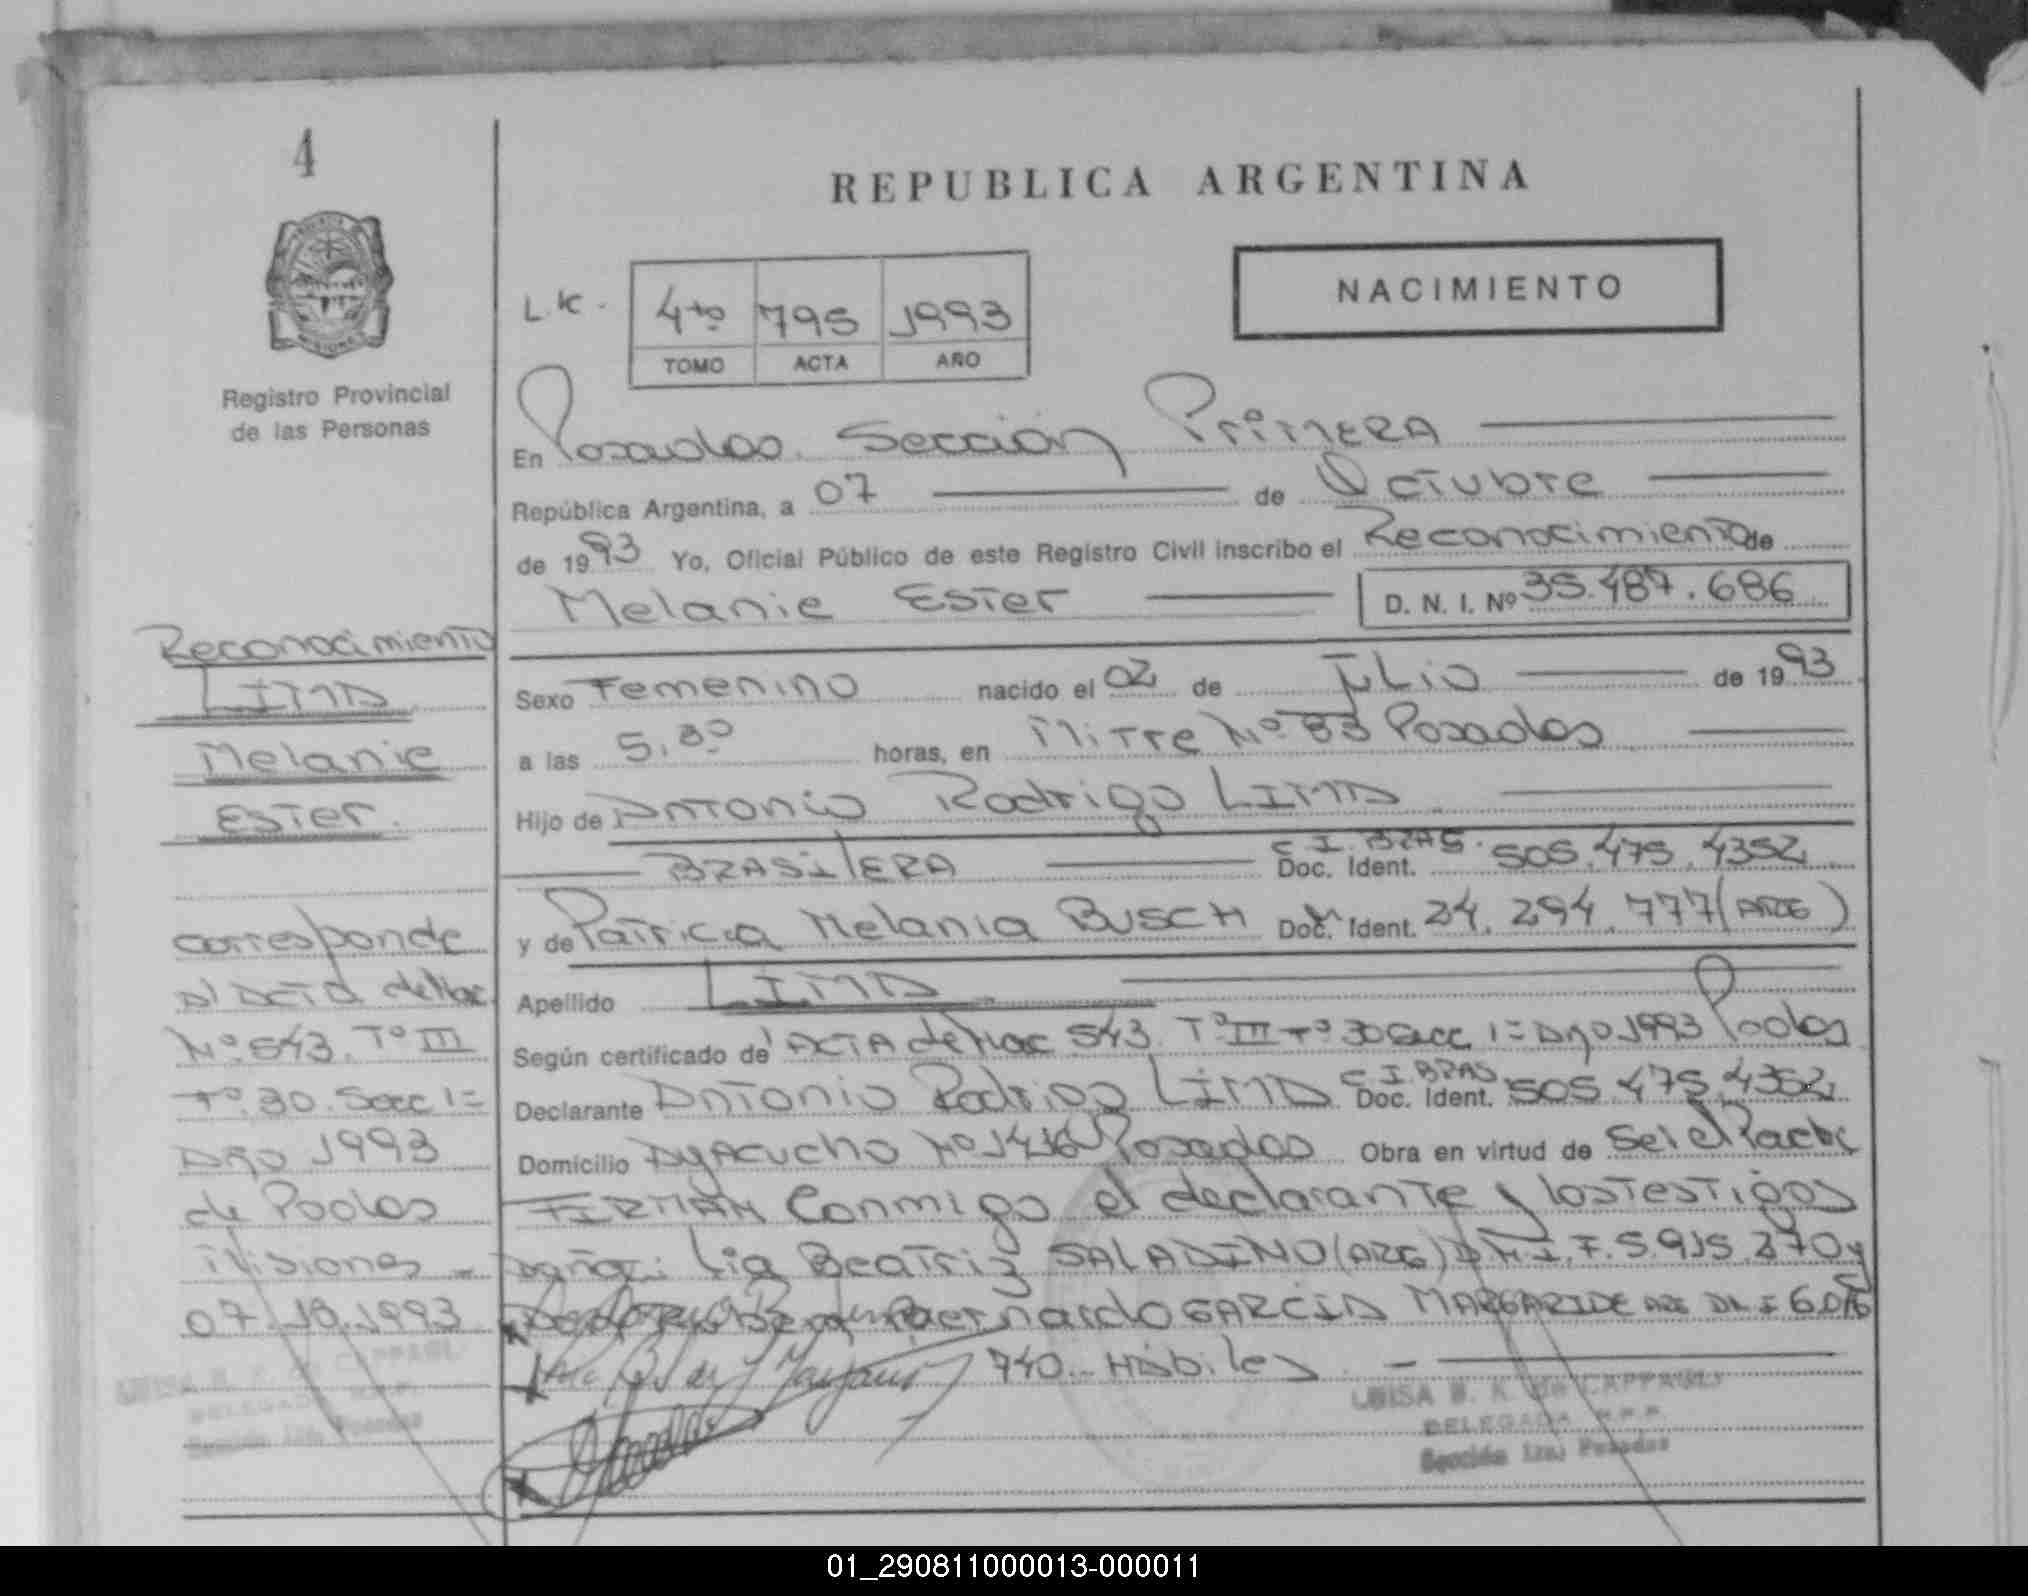 4
REPUBLICA ARGENTINA
NACIMIENTO
4to 795 1993
TOMO ACTA AÑO
Registro Provincial
de las Personas
En Posadas. Sección Primera
República Argentina, a 07 de Octubre
de 1993 Yo, Oficial Público de este Registro Civil inscribo el Reconocimiento de
Melanie Ester D. N. I. Nº 35.487.686
Sexo Femenino nacido el 02 de Julio de 1993
a las 5,30 horas, en Mitre Nº 83 Posadas
Hijo de Antonio Rodrigo LIMA
BRASilERA C.I. BRAS. Doc. Ident. 505.475.4352
y de Patricia Melania BUSCH Doc. Ident. 24.294.777 (ARG)
Apellido LIMA
Según certificado de ACTA de Nac 543. Tº III Fº 30 Secc. 1= Año 1993 Posdas
Declarante Antonio Rodrigo LIMA C.I. BRAS Doc. Ident. 505.475.4352
Domicilio Ayacucho Nº 1416 Posadas Obra en virtud de Ser el Padre
FIRMAN Conmigo el declarante y los testigos
Lia Beatriz SALADINO (ARG) D.N.I. F. 5.915.370 y
Bernardo GARCIA MARGARIDE ARG DNI 6.016
740.- Hábiles
Reconocimiento
LIMA
Melanie
Ester.
corresponde
Al Acta de Nac
Nº 543. Tº III
Fº 30. Secc 1=
Año 1993
de Posdas
Misiones -
07.10.1993
LUISA B. K. de CAPPAGLI
DELEGADA R.P.P.
Sección 1ra, Posadas
LUISA B. K. de CAPPAGLI
DELEGADA R.P.P.
Sección 1ra, Posadas
01_290811000013-000011